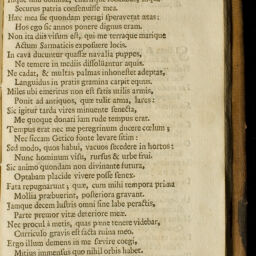 Securus patria consenuisse mea.
Hæc mea sic quondam peragi speraverat ætas:
Hos ego sic annos ponere dignus eram.
Non ita diis visum est, qui me terraque marique
Actum Sarmaticis exposuere locis.
In cava ducuntur quassæ navalia puppes,
Ne temere in mediis dissoluantur aquis.
Ne cadat, & multas palmas inhonestet adeptas,
Languidus in pratis gramina carpit equus.
Miles ubi emeritus non est satis utilis armis,
Ponit ad antiquos, quæ tulit arma, lares:
Sic igitur tarda vires minuente senecta,
Me quoque donari jam rude tempus erat.
Tempus erat nec me peregrinum ducere cœlum;
Nec siccam Getico fonte levare sitim:
Sed modo, quos habui, vacuos secedere in hortos:
Nunc hominum visu, rursus & urbe frui.
Sic animo quondam non divinante futura,
Optabam placide vivere posse senex.
Fata repugnarunt; quæ, cum mihi tempora prima
Mollia præbuerint, posteriora gravant.
Jamque decem lustris omni sine labe peractis,
Parte premor vitæ deteriore meæ.
Nec procul à metis, quas pæne tenere videbar,
Curriculo gravis est facta ruina meo.
Ergo illum demens in me sævire coegi,
Mitius immensus quo nihil orbis habet.